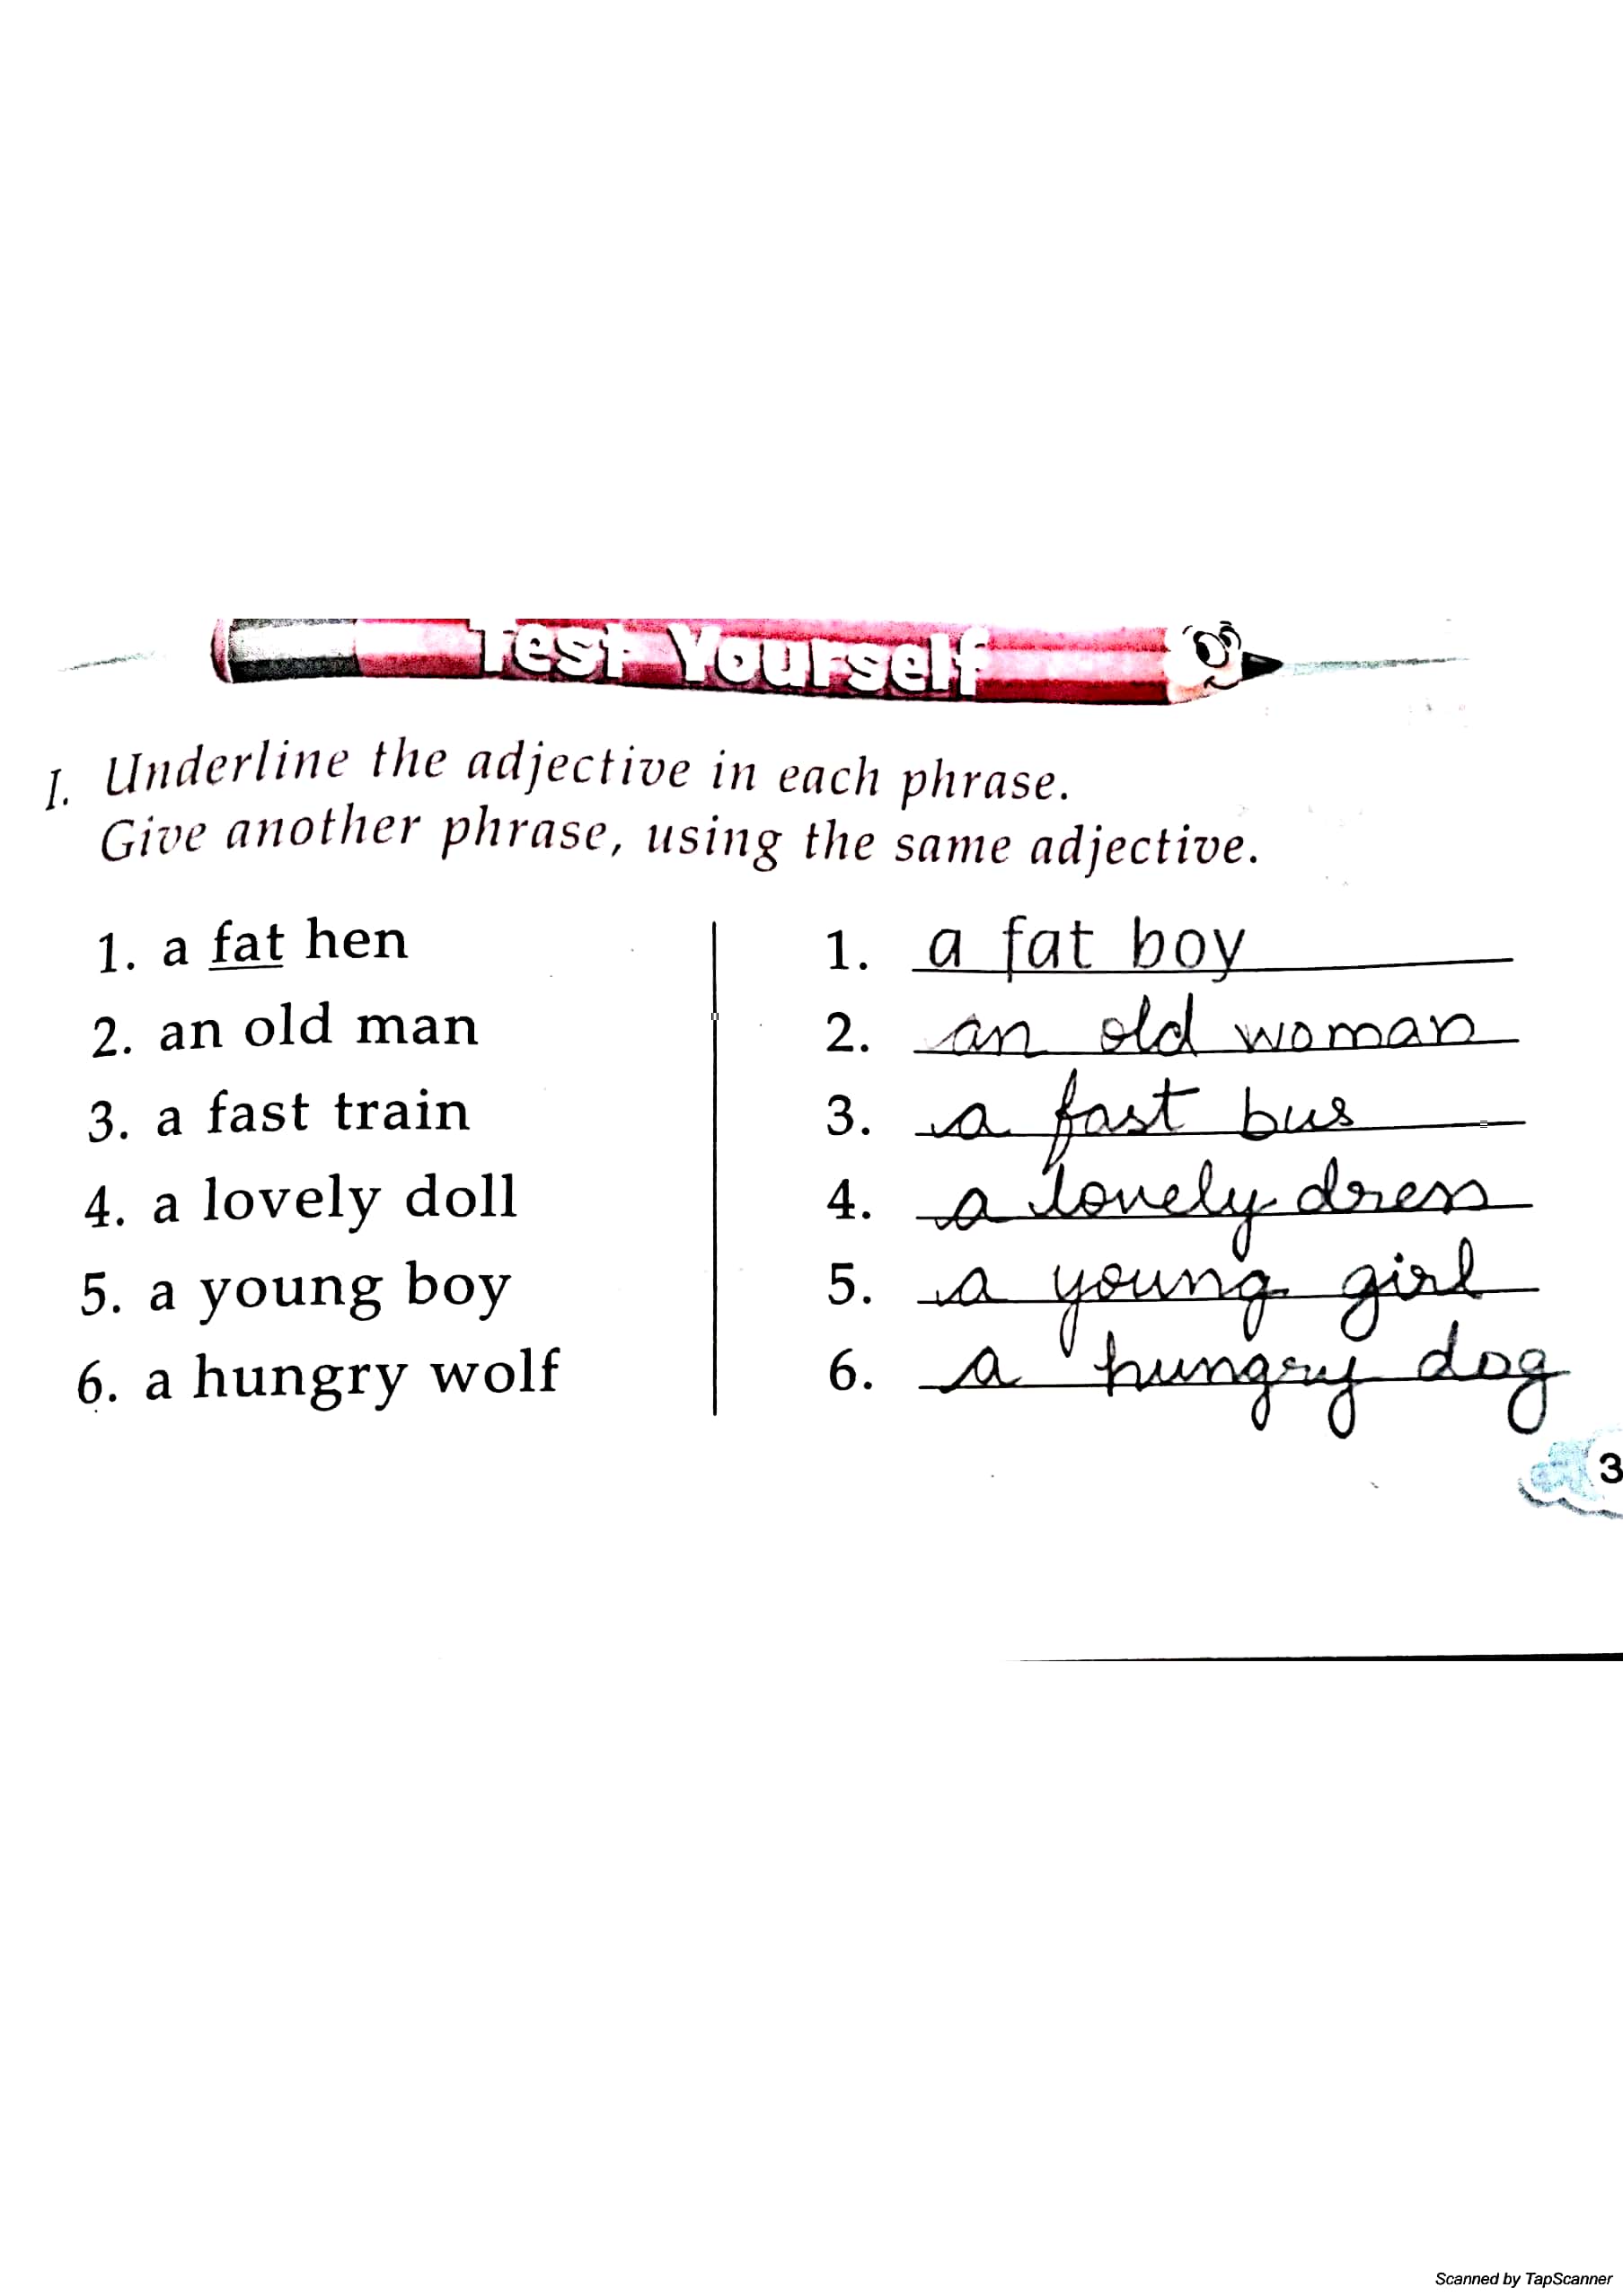 Test Yourself
I. Underline the adjective in each phrase.
Give another phrase, using the same adjective.
1. a fat hen
2. an old man
3. a fast train
4. a lovely doll
5. a young boy
6. a hungry wolf
1. a fat boy
2. an old woman
3. a fast bus
4. a lovely dress
5. a young girl
6. a hungry dog
3
Scanned by TapScanner